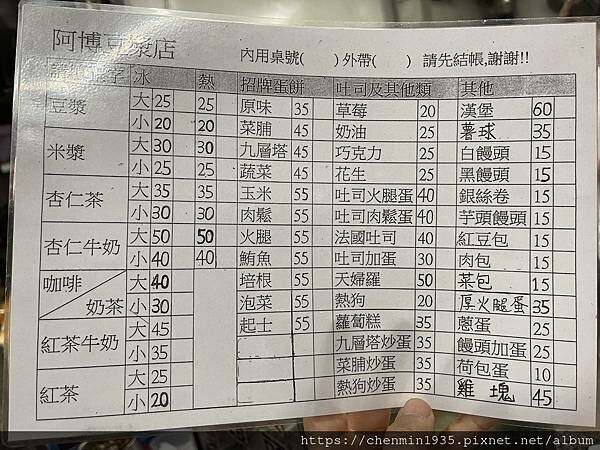 阿博豆漿店
內用桌號( )外帶( ) 請先結帳,謝謝!!
冰 熱 招牌蛋餅 吐司及其他類 其他
豆漿 大25 25 原味 35 草莓 20 漢堡 60
小20 20 菜脯 45 奶油 25 薯球 35
米漿 大30 30 九層塔 45 巧克力 25 白饅頭 15
小25 25 蔬菜 45 花生 25 黑饅頭 15
杏仁茶 大35 35 玉米 55 吐司火腿蛋 40 銀絲卷 15
小30 30 肉鬆 55 吐司肉鬆蛋 40 芋頭饅頭 15
杏仁牛奶 大50 50 火腿 55 法國吐司 40 紅豆包 15
小40 40 鮪魚 55 吐司加蛋 30 肉包 15
咖啡 大40 培根 55 天婦羅 50 菜包 15
奶茶 小30 泡菜 55 熱狗 20 厚火腿蛋 35
紅茶牛奶 大45 起士 55 蘿蔔糕 35 蔥蛋 25
小35 九層塔炒蛋 35 饅頭加蛋 25
紅茶 大25 菜脯炒蛋 35 荷包蛋 10
小20 熱狗炒蛋 35 雞塊 45
https://chenmin1935.pixnet.net/album